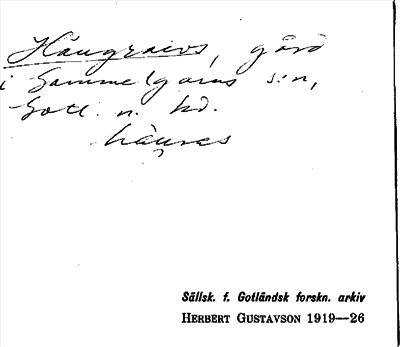 Häugraivs, gård
i Gammelgarns s:n,
Gotl. n. hd.
Sällsk. f. Gotländsk forskn. arkiv
HERBERT GUSTAVSON 1919—26